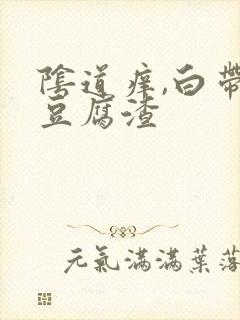 陰道痒,白帶
豆腐渣
元氣滿滿葉落